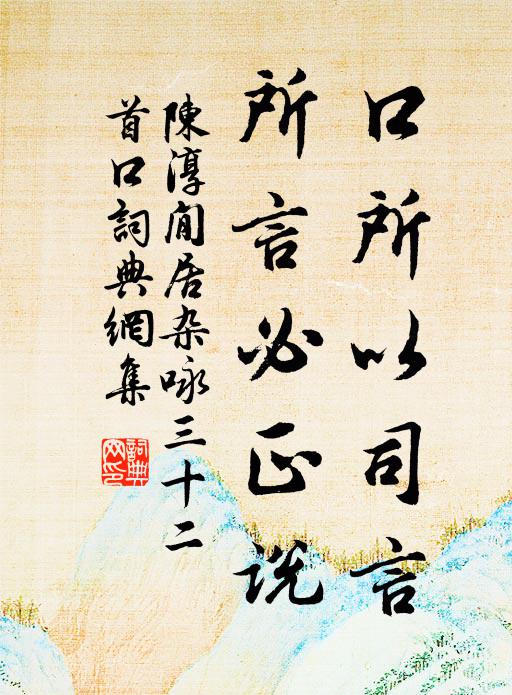 口所以司言
所言必正说
陳淳閒居杂咏三十二
首口詞典網集
詞典
网印